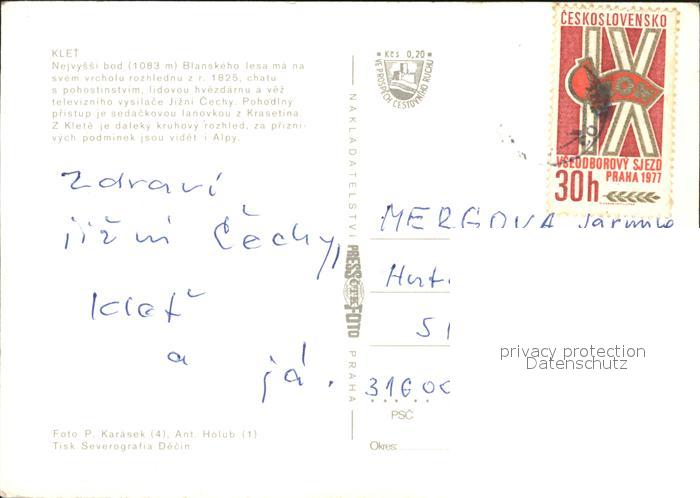 KLEŤ
Nejvyšší bod (1083 m) Blanského lesa má na
svém vrcholu rozhlednu z r. 1825, chatu
s pohostinstvím, lidovou hvězdárnu a věž
televizního vysílače Jižní Čechy. Pohodlný
přístup je sedačkovou lanovkou z Krasetína.
Z Kletě je daleký kruhový rozhled, za přízni-
vých podmínek jsou vidět i Alpy.
Zdraví
jižní Čechy,
Kleť
a
já.
Foto P. Karásek (4), Ant. Holub (1)
Tisk Severografia Děčín
Kčs 0,20
VE PROSPĚCH CESTOVNÍHO RUCHU
NAKLADATELSTVÍ
PRESSFOTO
ČTK
PRAHA
ČESKOSLOVENSKO
IX
ROH
VŠEODBOROVÝ SJEZD
PRAHA 1977
30h
MERGOVA Jarmila
316 00
PSČ
Okres:
privacy protection
Datenschutz